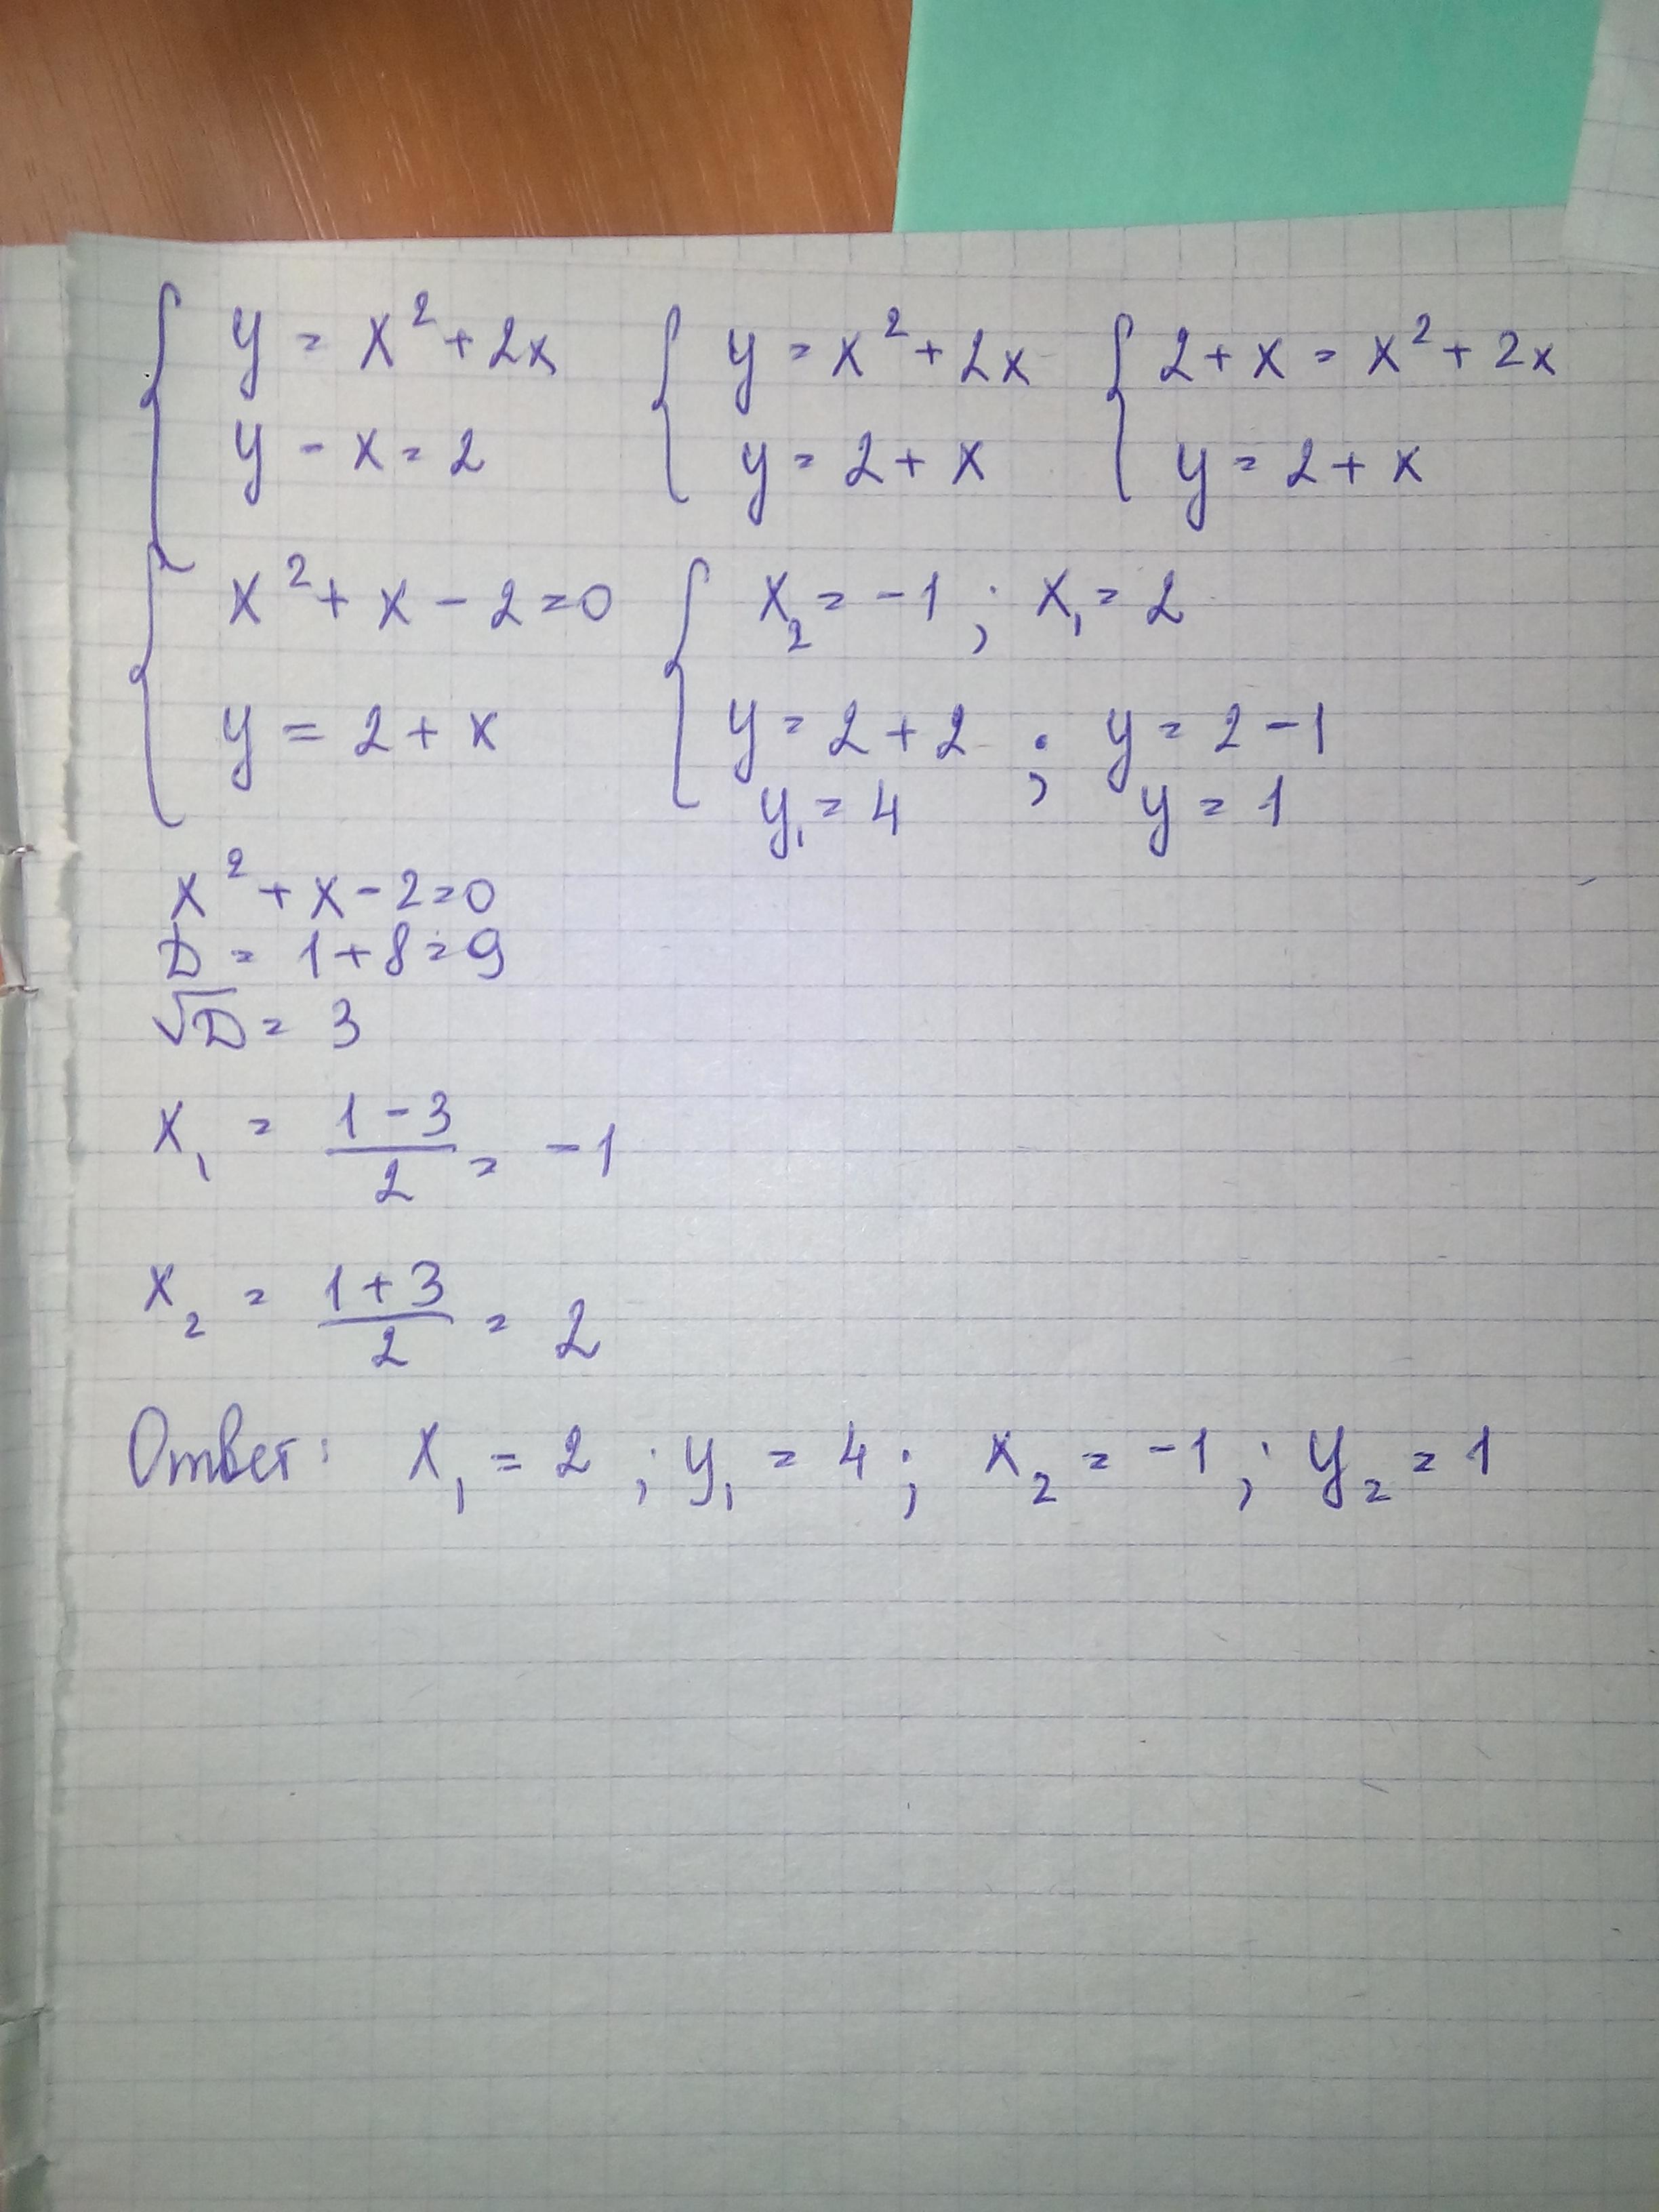 { y = x² + 2x { y = x² + 2x { 2 + x = x² + 2x
y - x = 2 y = 2 + x y = 2 + x
{ x² + x - 2 = 0 { x₂ = -1 ; x₁ = 2
y = 2 + x y = 2 + 2 ; y = 2 - 1
y₁ = 4 y = 1
x² + x - 2 = 0
D = 1 + 8 = 9
√D = 3
x₁ = (1 - 3)/2 = -1
x₂ = (1 + 3)/2 = 2
Ответ: x₁ = 2 ; y₁ = 4 ; x₂ = -1 ; y₂ = 1